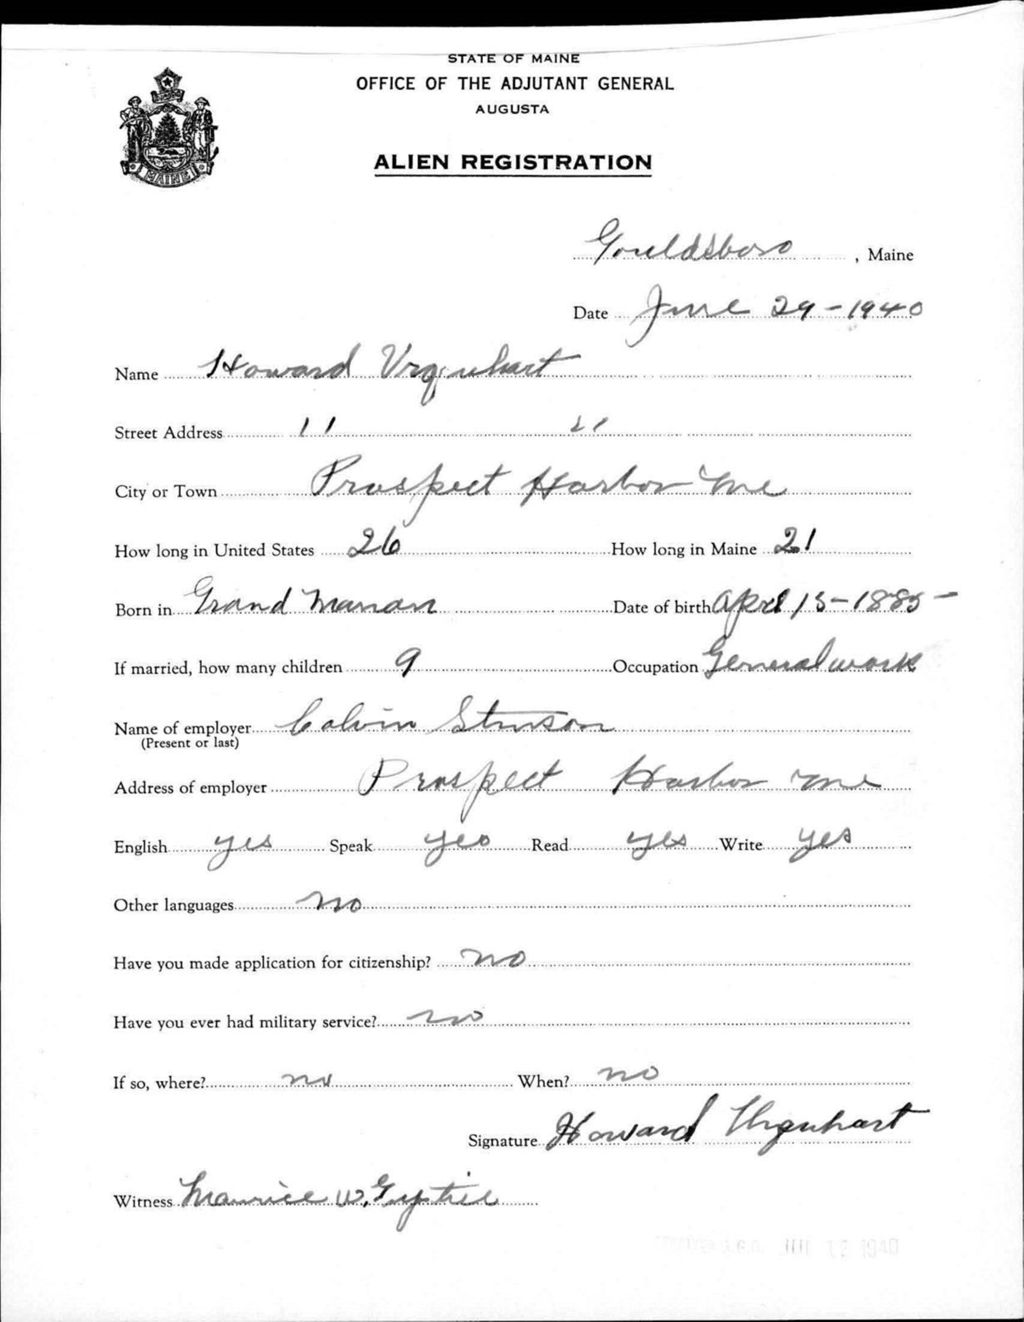 STATE OF MAINE
OFFICE OF THE ADJUTANT GENERAL
AUGUSTA
MAINE
ALIEN REGISTRATION
Gouldsboro , Maine
Date June 29-1940
Name Howard Urquhart
Street Address 11 11
City or Town Prospect Harbor Me
How long in United States 26 How long in Maine 21
Born in Grand Manan Date of birth April 15-1885-
If married, how many children 9 Occupation General work
Name of employer Calvin Stinson
(Present or last)
Address of employer Prospect Harbor Me
English yes Speak yes Read yes Write yes
Other languages no
Have you made application for citizenship? no
Have you ever had military service? no
If so, where? no When? no
Signature Howard Urquhart
Witness Maurice W.
1940